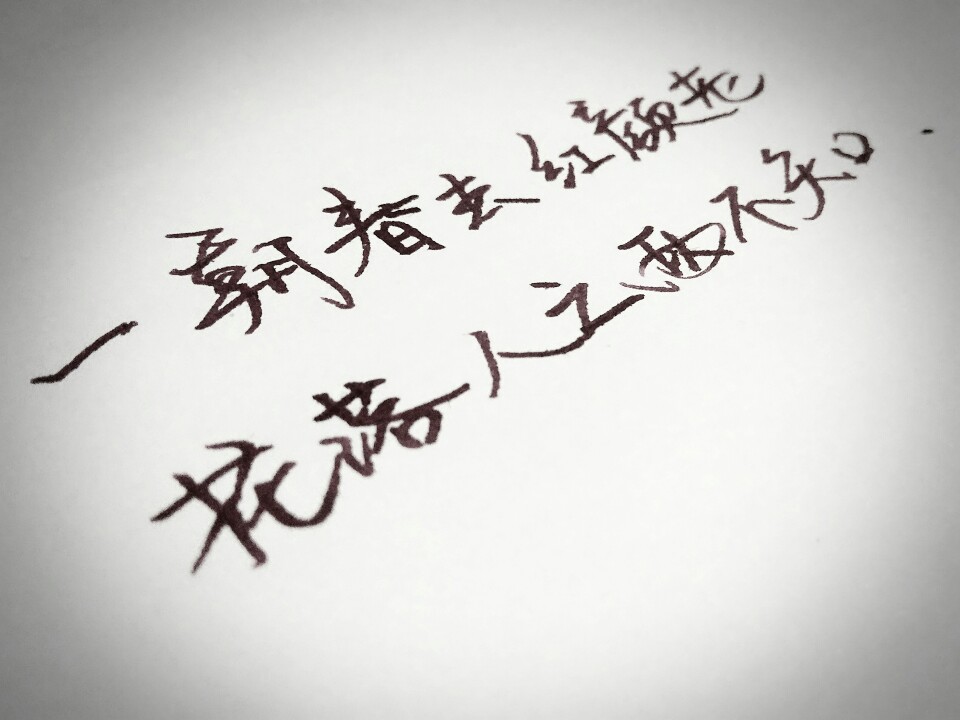 一朝春去红颜老
花落人亡两不知